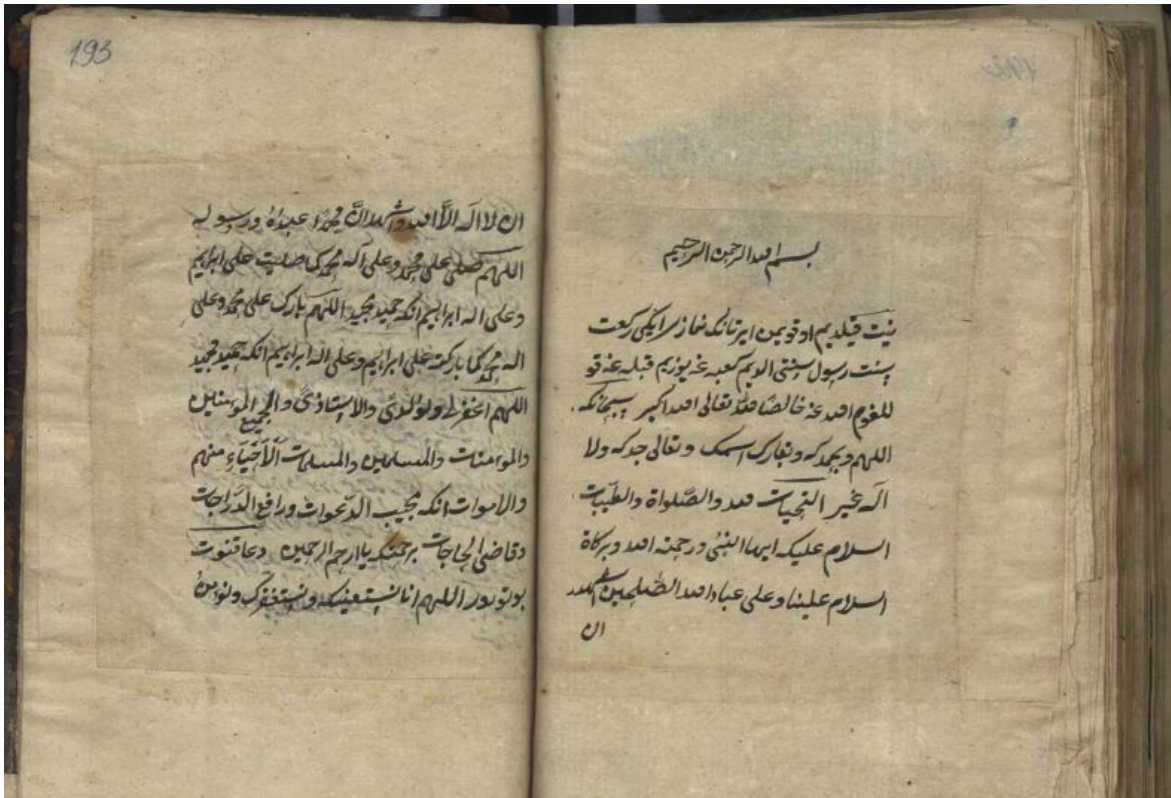 بسم الله الرحمن الرحيم
نیت قیلدیم اوقویمن ایرتانک نماز سرا ایکی رکعت
سنت رسول سنتی الویم کعبه غه یوزیم قبله غه قو
للغوم الله غه خالصًا لله تعالی الله اکبر سبحانک
اللهم وبحمدکه وتبارک اسمک وتعالی جدکه ولا
اله غیر التحیات لله والصّلواة والطّیبات
السلام علیک ایها النبی ورحمة الله وبرکاة
السلام علینا وعلی عباد الله الصّلحین اشهد
ان
193
ان لا اله الاّ الله واشهد انَّ محمدًا عبدُهُ ورسوله
اللهم صلی علی محمد وعلی آله محمد کما صلیت علی ابراهیم
وعلی اله ابراهیم انکه حمید مجید اللهم بارک علی محمد وعلی
اله محمد کما بارکته علی ابراهیم وعلی اله ابراهیم انکه حمید مجید
اللهم اغفرلی ولوالدیّ والاستاذی والجمیع المؤمنین
والمؤمنات والمسلمین والمسلمات اَلْاَحْیَاءِ منهم
والاموات انکه مجیب الدّعوات ورافع الدّراجات
وقاضی الحاجات برحمتکه یا ارحم الرحمین دعا قنوت
بوتورور اللهم انا نستعینکه ونستغفرک ونؤمن